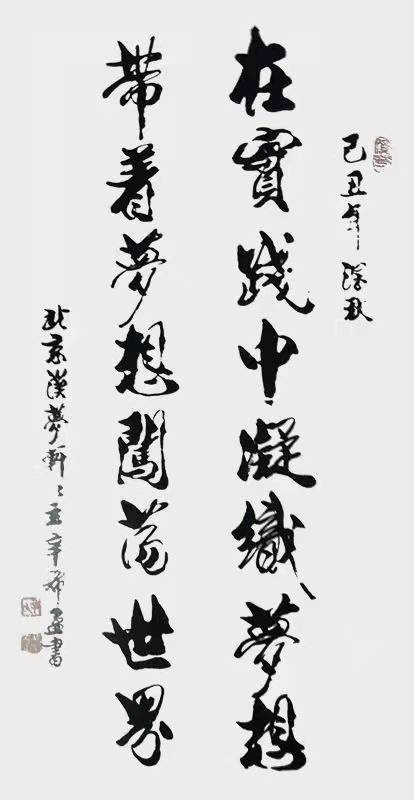 己丑年深秋
在實踐中凝織夢想
帶着夢想闖蕩世界
北京漢夢軒〻主辛希孟書